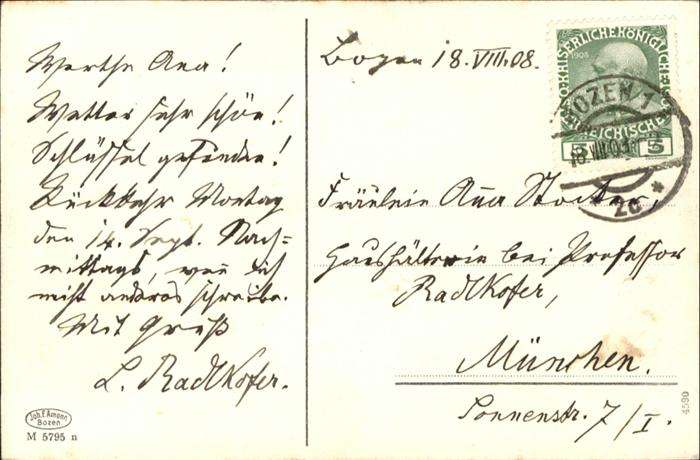 Werthe Anna!
Wetter sehr schön!
Schlüssel gefunden!
Rückkehr Montag
den 14. Sept. Nach=
mittags, wenn ich
nicht anderes schreibe.
Mit Gruß
L. Radlkofer.
Joh. F. Amonn
Bozen
M 5795 n
Bozen 18. VIII. 08.
1908
BOZEN 1
18 VIII 08
5 5
2c *
Fräulein Anna Stocker,
Haushälterin bei Professor
Radlkofer,
München.
Sonnenstr. 7/I.
4590